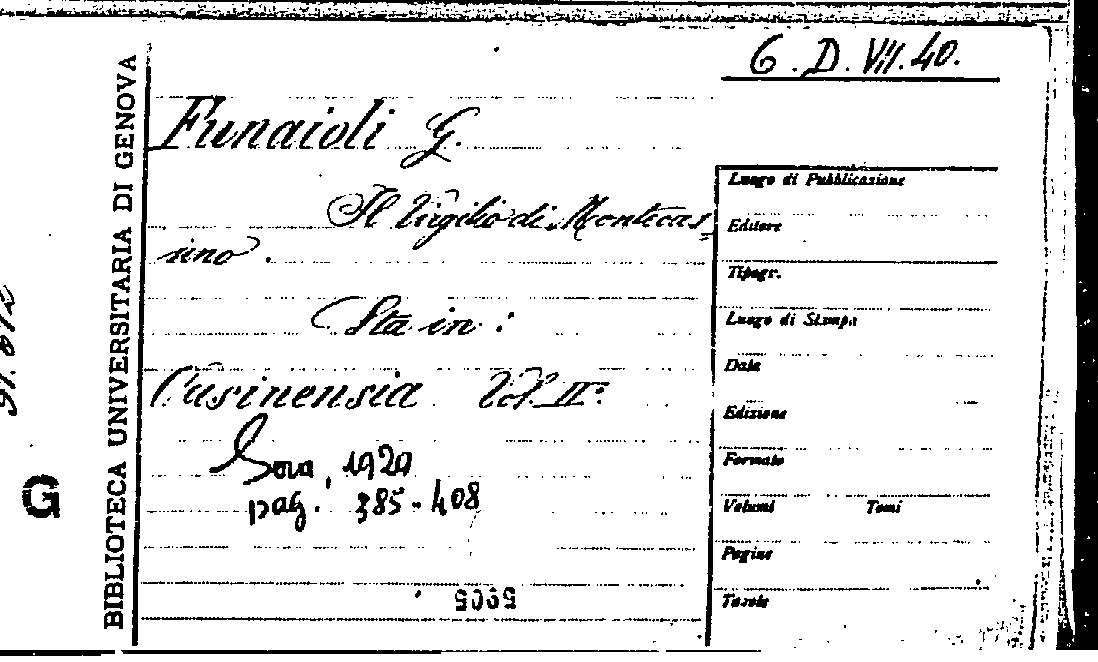 6. D. VII. 40.
BIBLIOTECA UNIVERSITARIA DI GENOVA
G
Funaioli G.
Il Virgilio di Montecas
sino.
Sta in:
Casinensia Vol. II°
Sora, 1929
pag. 385-408
Luogo di Pubblicazione
Editore
Tipogr.
Luogo di Stampa
Data
Edizione
Formato
Volumi Tomi
Pagine
Tavole